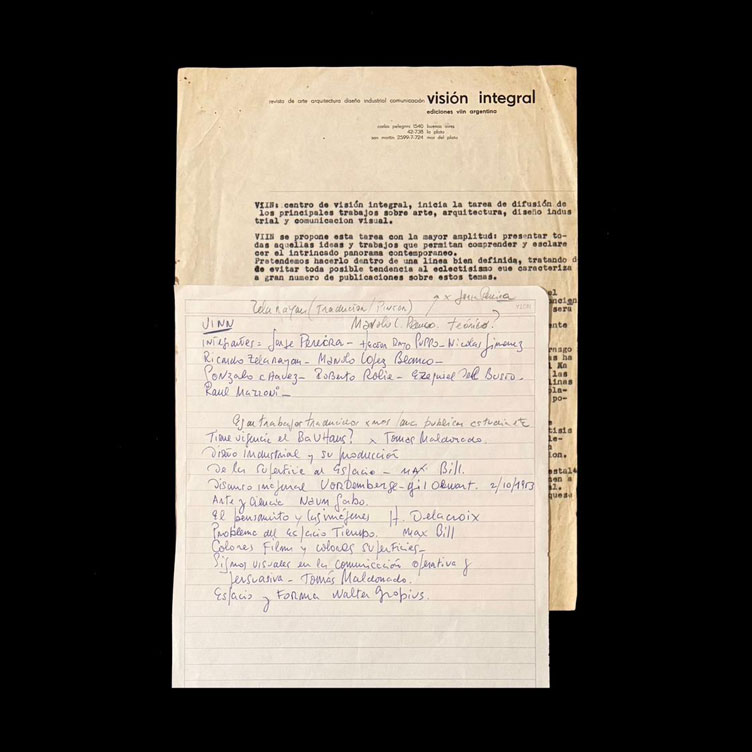 revista de arte arquitectura diseño industrial comunicación visión integral
ediciones viin argentina
carlos pelegrini 1540 buenos aires
42-738 la plata
san martin 2599-7-724 mar del plata
VIIN: centro de visión integral, inicia la tarea de difusión de
los principales trabajos sobre arte, arquitectura, diseño indus
trial y comunicacion visual.
VIIN se propone esta tarea con la mayor amplitud: presentar to-
das aquellas ideas y trabajos que permitan comprender y esclare
cer el intrincado panorama contemporaneo.
Pretendemos hacerlo dentro de una linea bien definida, tratando d
de evitar toda posible tendencia al eclectisismo eue caracteriza
a gran numero de publicaciones sobre estos temas.
Zelarayan (traduccion/Pinson) x Jorge Pereira
VINN Manolo L. Blanco teórico?
integrantes = Jorge Pereira - Hector Puppo - Nicolas Jimenez
Ricardo Zelarayan - Manolo López Blanco -
Gonzalo Chavez - Roberto Rollie - Ezequiel del Busto -
Raul Mazzoni -
Ejan trabajos traducidos x nos para publicar
Tiene vigencia el Bauhaus? x Tomas Maldonado.
Diseño Industrial y su producción
De la superficie al Espacio - Max Bill.
Discurso inaugural Vordemberge-gildewart. 2/10/1953
Arte y Ciencia Naum Gabo.
El pensamiento y las imágenes H. Delacroix
Problema del Espacio Tiempo. Max Bill
Colores Films y colores superficies -
Signos visuales en la comunicación operativa y
persuasiva - Tomás Maldonado.
Espacio y Forma Walter Gropius.